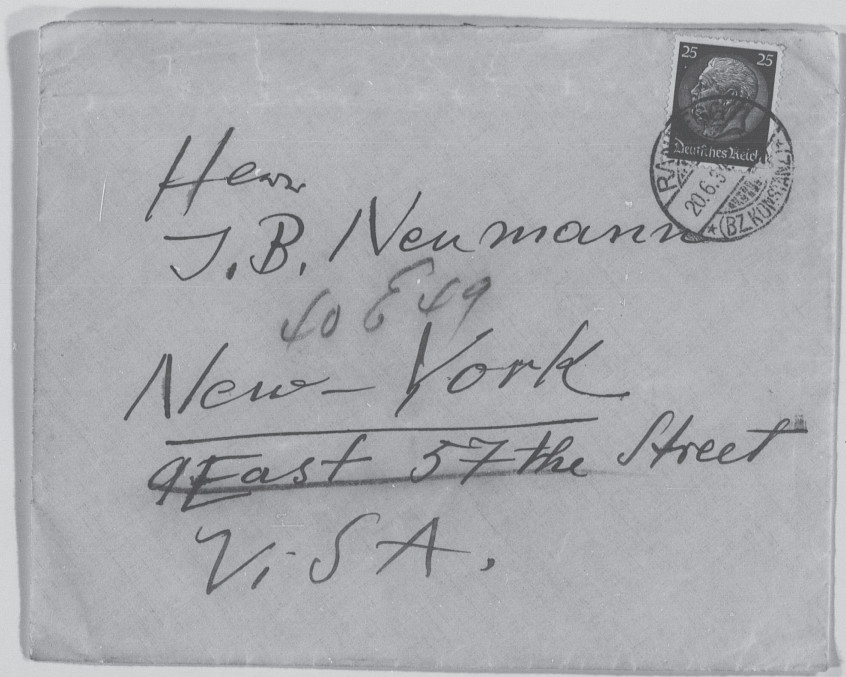 25 25
Deutsches Reich
20.6.3
(BZ. KONSTANZ)
Herrn
J. B. Neumann
40 E 49
New-York
9 East 57 the Street
U.S.A.